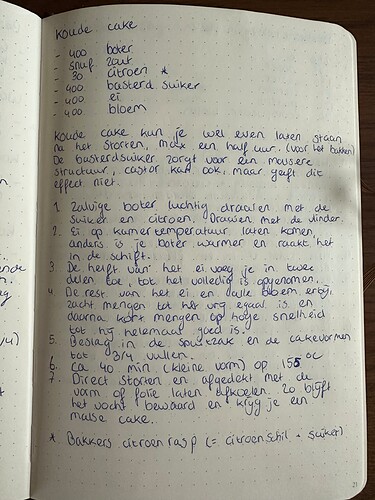 Koude cake
- 400 boter
- snuf zout
- 30 citroen *
- 400 basterd suiker
- 400 ei
- 400 bloem
Koude cake kun je wel even laten staan
na het storten, max een half uur. (voor het bakken)
De basterdsuiker zorgt voor een malsere
structuur, castor kan ook, maar geeft dit
effect niet.
1. Zalvige boter luchtig draaien met de
suiker en citroen. Draaien met de vlinder.
2. Ei op kamertemperatuur laten komen,
anders is je boter warmer en raakt het
in de schift.
3. De helft van het ei voeg je in twee
delen toe, tot het volledig is opgenomen.
4. De rest van het ei en alle bloem erbij,
zacht mengen tot het vrij egaal is en
daarna kort mengen op hoge snelheid
tot hij helemaal goed is.
5. Beslag in de spuitzak en de cakevormen
tot 3/4 vullen.
6. Ca 40 min (kleine vorm) op 155 °C
7. Direct storten en afgedekt met de
vorm of folie laten afkoelen. Zo blijft
het vocht bewaard en krijg je een
malse cake.
* Bakkers citroenrasp (= citroenschil + suiker)
21